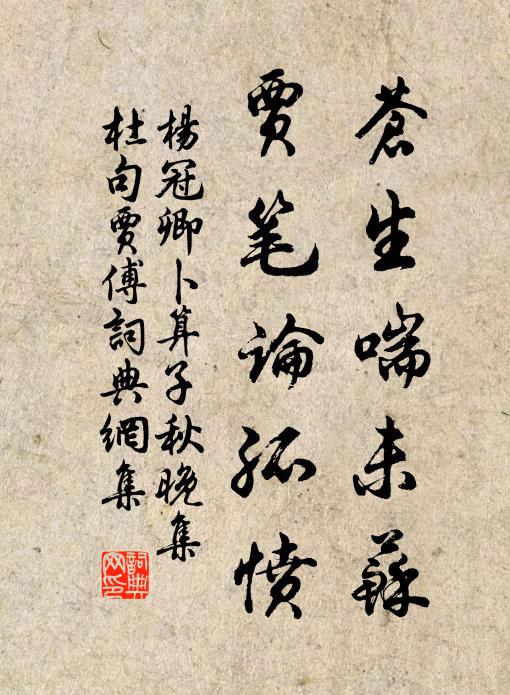 蒼生喘未蘇
賈笔論孤憤
楊冠卿卜算子秋晚集
杜句賈傅詞典網集
詞典
网印